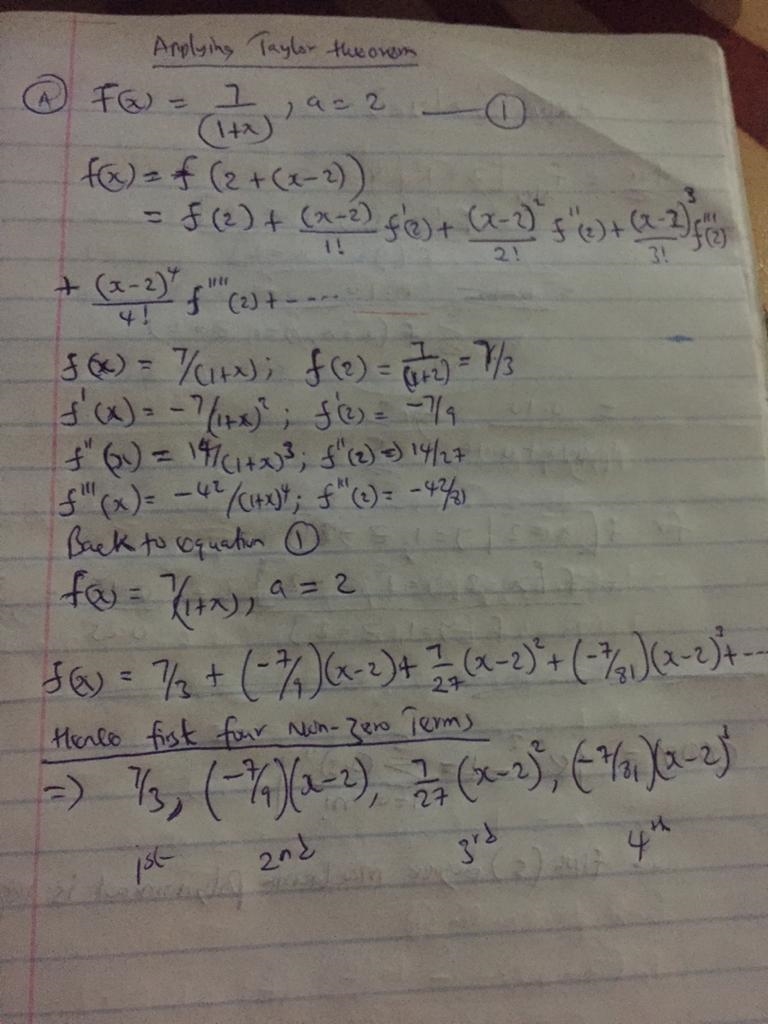 Applying Taylor theorem
Ⓐ F(x) = 7/(1+x), a = 2 —— ①
f(x) = f (2 + (x-2))
= f(2) + (x-2)/1! f'(2) + (x-2)²/2! f''(2) + (x-2)³/3! f'''(2)
+ (x-2)⁴/4! f''''(2) + ----
f(x) = 7/(1+x); f(2) = 7/(1+2) = 7/3
f'(x) = -7/(1+x)²; f'(2) = -7/9
f''(x) = 14/(1+x)³; f''(2) => 14/27
f'''(x) = -42/(1+x)⁴; f'''(2) = -42/81
Back to equation ①
f(x) = 7/(1+x), a = 2
f(x) = 7/3 + (-7/9)(x-2) + 7/27 (x-2)² + (-7/81)(x-2)³ + ---
Hence first four Non-zero Terms
=> 7/3, (-7/9)(x-2), 7/27 (x-2)², (-7/81)(x-2)³
1st 2nd 3rd 4th